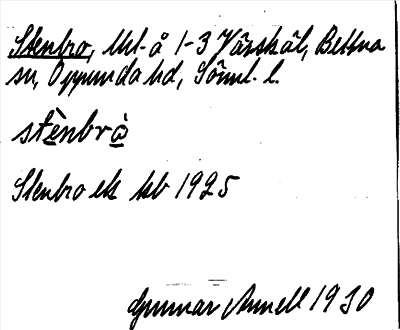 Stenbro, Utl. å 1-3 Vårskäl, Bettna
sn, Oppunda hd, Sörml. l.
stènbrò
Stenbro ek kb 1925
Gunnar Annell 1930